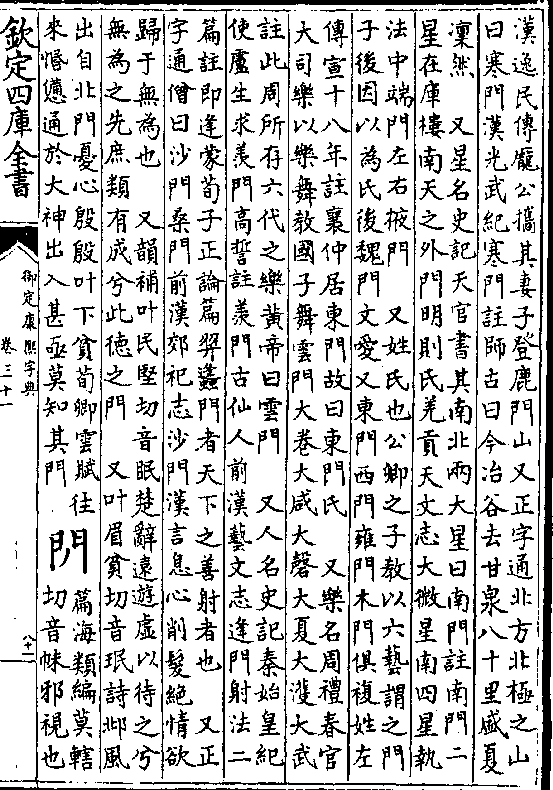 漢逸民傳龐公攜其妻子登鹿門山又正字通北方北極之山
曰寒門漢光武紀寒門註師古曰今冶谷去甘泉八十里盛夏
凜然　又星名史記天官書其南北兩大星曰南門註南門二
星在庫樓南天之外門明則氐羌貢天文志大微星南四星執
法中端門左右掖門　又姓氏也公卿之子教以六藝謂之門
子後因以為氏後魏門文愛又東門西門雍門木門俱複姓左
傳宣十八年註襄仲居東門故曰東門氏　又樂名周禮春官
大司樂以樂舞教國子舞雲門大卷大咸大磬大夏大濩大武
註此周所存六代之樂黃帝曰雲門　又人名史記秦始皇紀
使盧生求羨門高誓註羨門古仙人前漢藝文志逢門射法二
篇註即逢蒙荀子正論篇羿蠭門者天下之善射者也　又正
字通僧曰沙門桑門前漢郊祀志沙門漢言息心削髮絶情欲
歸于無為也　又韻補叶民堅切音眠楚辭遠遊虛以待之兮
無為之先庶類有成兮此德之門　又叶眉貧切音珉詩邶風
出自北門憂心殷殷叶下貧荀卿雲賦往
來惛憊通於大神出入甚亟莫知其門
篇海類編莫轄
切音帓邪視也
欽定四庫全書
御定康熙字典
卷三十一